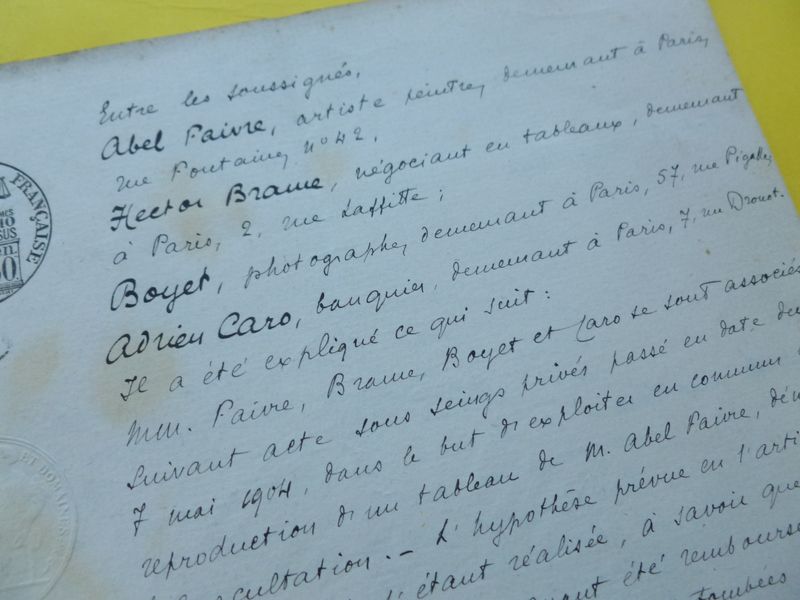 Entre les soussignés,
Abel Faivre, artiste peintre, demeurant à Paris,
rue Fontaine, n° 42,
Hector Brame, négociant en tableaux, demeurant
à Paris, 2, rue Laffitte ;
Boyet, photographe, demeurant à Paris, 57, rue Pigalle,
Adrien Caro, banquier, demeurant à Paris, 7, rue Drouot.
Il a été expliqué ce qui suit :
MM. Faivre, Brame, Boyet et Caro se sont associés
suivant acte sous seings privés passé en date du
7 mai 1904, dans le but d'exploiter en commun
reproduction d'un tableau de M. Abel Faivre,
– L'hypothèse prévue en l'arti
étant réalisée, à savoir que
été rembourse
tombées
FRANÇAISE